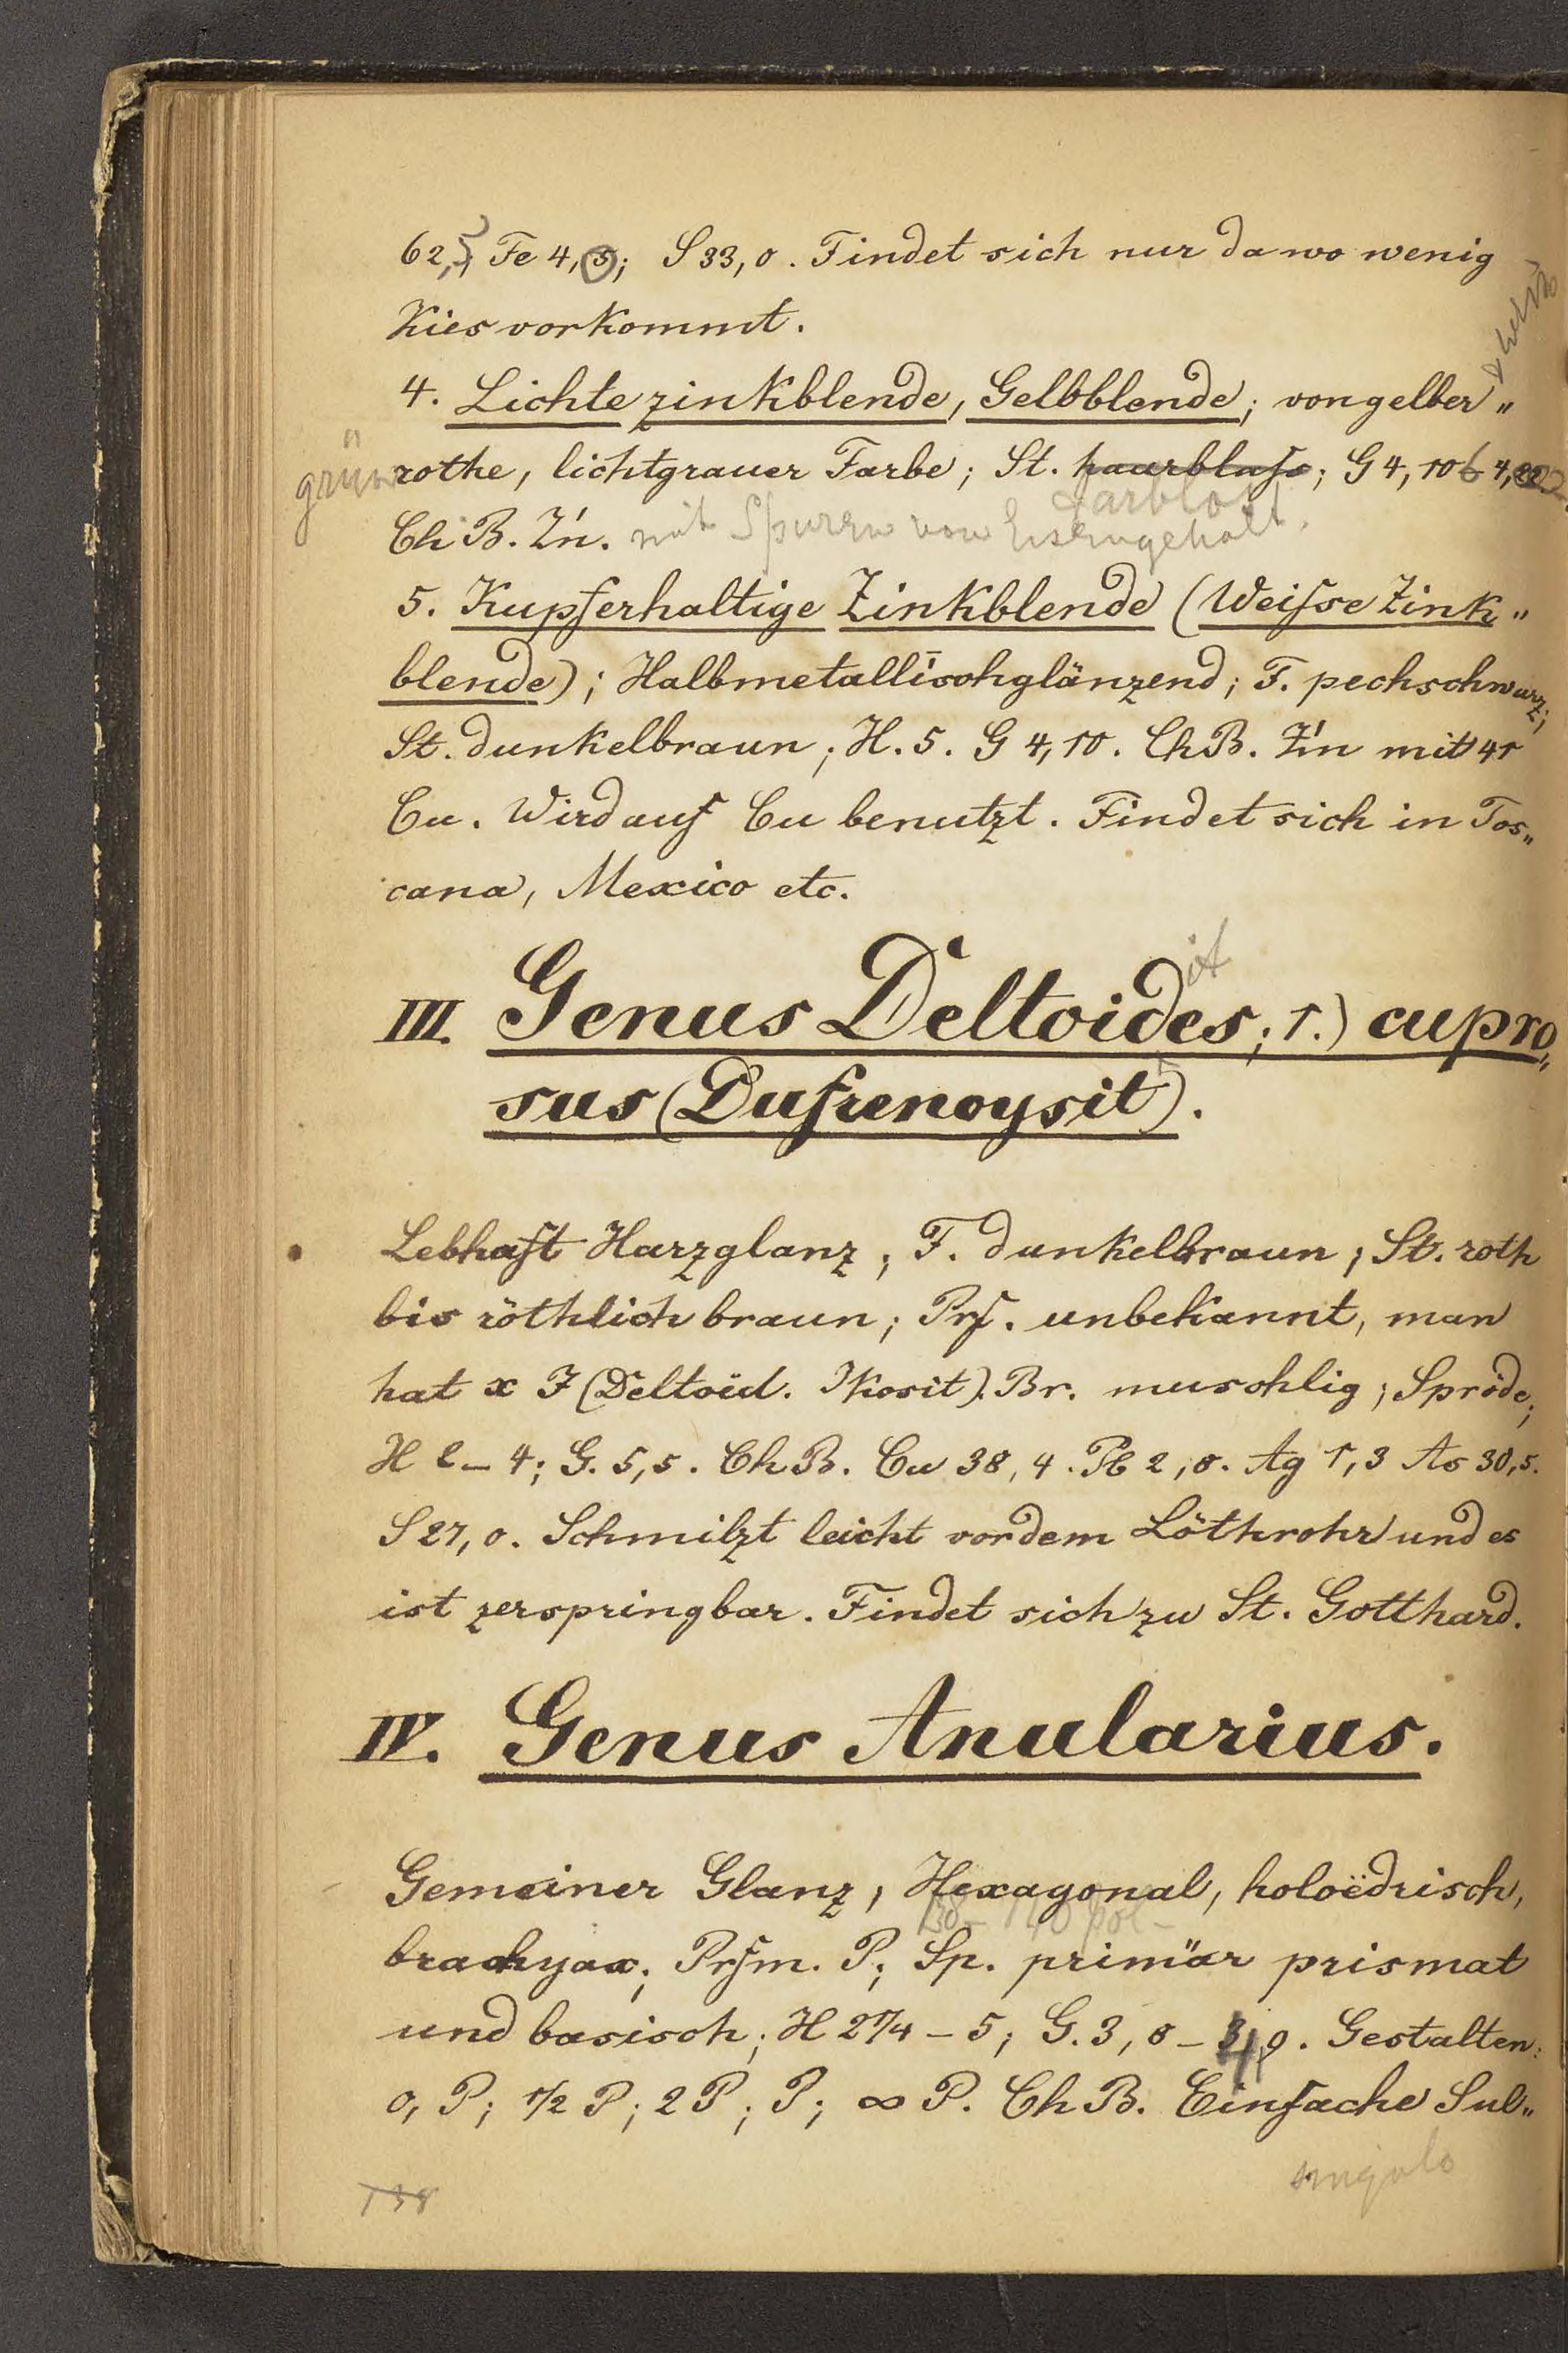 62,5 Fe 4,5; S 33,0. Findet sich nur da wo wenig
Kies vorkommt.
4. Lichte zinkblende, Gelbblende; von gelber „
grün rothe, lichtgrauer Farbe; St. haarblass; G 4,10 b 4,22
farblos
Ch B. Z'n. mit Spuren von Eisengehalt.
5. Kupferhaltige Zinkblende (Weisse Zink„
blende); Halbmetallischglänzend; F. pechschwarz;
St. dunkelbraun; H. 5. G 4,10. Ch B. Z'n mit 41
Cu. Wird auf Cu benutzt. Findet sich in Tos„
cana, Mexico etc.
it
III. Genus Deltoides; 1.) cupro„
sus (Dufrenoysit).
Lebhaft Harzglanz; F. dunkelbraun; St. roth
bis röthlich braun; Prf. unbekannt, man
hat x J (Deltoid. Ikosit). Br. muschlig; Spröde;
H 2 – 4; G. 5,5. Ch B. Cu 38,4. Pb 2,8. Ag 1,3 As 30,5.
S 27,0. Schmilzt leicht vor dem Löthrohr und es
ist zerspringbar. Findet sich zu St. Gotthard.
IV. Genus Anularius.
Gemeiner Glanz, Hexagonal, holoëdrisch,
brachyax; Prfm. P; Sp. primär prismat
und basisch; H 2 1/4 – 5; G. 3,8 – 4,9. Gestalten:
0, P; 1/2 P; 2 P; P; ∞ P. Ch B. Einfache Sul„
singulo
138